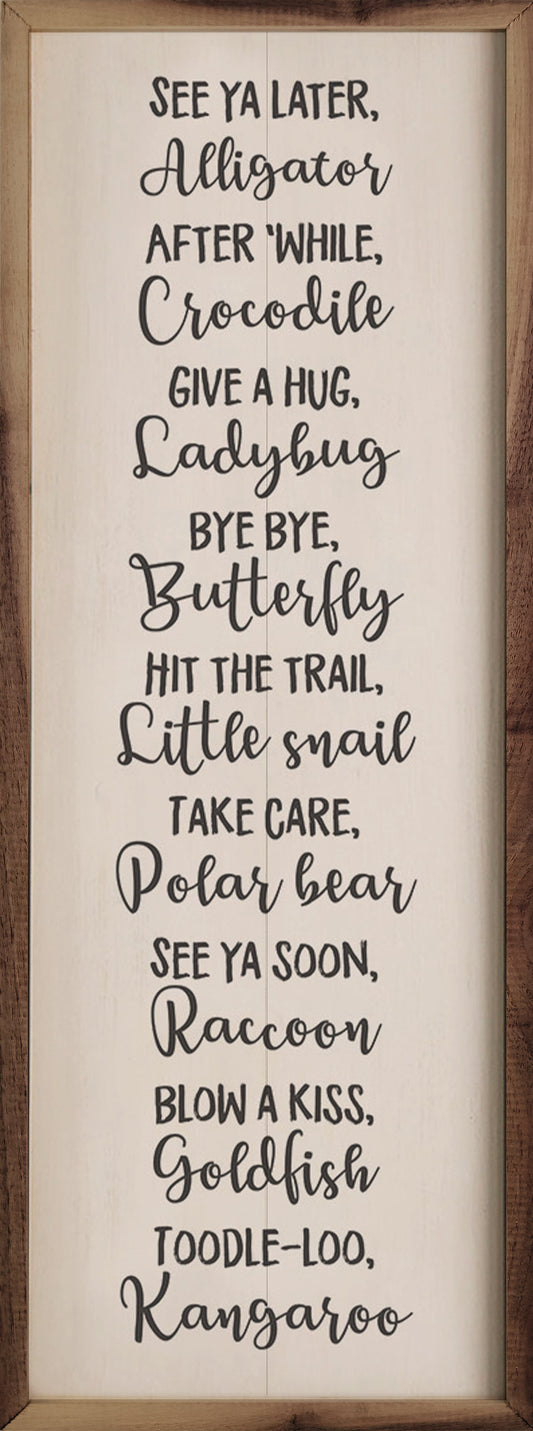 SEE YA LATER,
Alligator
AFTER 'WHILE,
Crocodile
GIVE A HUG,
Ladybug
BYE BYE,
Butterfly
HIT THE TRAIL,
Little snail
TAKE CARE,
Polar bear
SEE YA SOON,
Raccoon
BLOW A KISS,
Goldfish
TOODLE-LOO,
Kangaroo